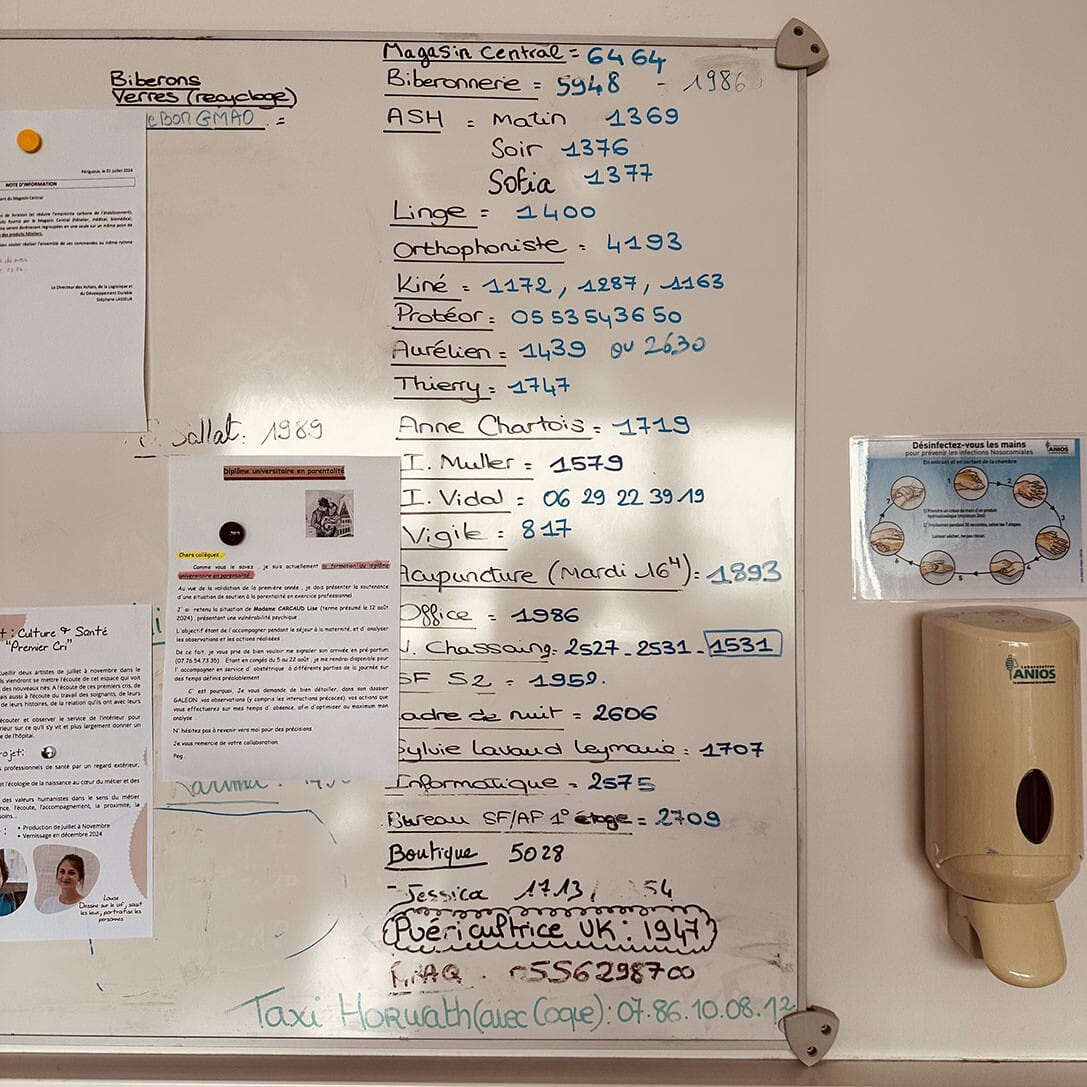 Biberons
Verres (recyclage)
BON GMAO =
Périgueux, le 01 juillet 2024
NOTE D'INFORMATION
du Magasin Central
de livraison (et réduire l'empreinte carbone de l'établissement),
fournis par le Magasin Central (hôtelier, médical, biomédical,
seront dorénavant regroupées en une seule sur un même point de
des produits hôteliers.
vouloir réaliser l'ensemble de ses commandes au même rythme
Le Directeur des Achats, de la Logistique et
du Développement Durable
Stéphane LASSEUR
Sallat: 1989
Diplôme universitaire en parentalité
Chers collègues,
Comme vous le savez, je suis actuellement la formation du diplôme
universitaire en parentalité
Au vue de la validation de la première année, je dois présenter la soutenance
d'une situation de soutien à la parentalité en exercice professionnel
J'ai retenu la situation de Madame CARCAUD Lise (terme présumé le 12 août
2024), présentant une vulnérabilité psychique
L'objectif étant de l'accompagner pendant le séjour à la maternité, et d'analyser
les observations et les actions réalisées
De ce fait, je vous prie de bien vouloir me signaler son arrivée en pré partum
(07.76.54.73.35). Etant en congés du 5 au 22 août, je me rendrai disponible pour
l'accompagner en service d'obstétrique à différents parties de la journée sur
des temps définis préalablement.
C'est pourquoi, Je vous demande de bien détailler, dans son dossier
GALEON, vos observations (y compris les interactions précoces), vos actions que
vous effectuerez sur mes temps d'absence, afin d'optimiser au maximum mon
analyse
N'hésitez pas à revenir vers moi pour des précisions
Je vous remercie de votre collaboration
Peg
: Culture & Santé
"Premier Cri"
cueillir deux artistes de juillet à novembre dans le
viendront se mettre à l'écoute de cet espace qui voit
des nouveaux nés. A l'écoute de ces premiers cris, de
mais aussi à l'écoute du travail des soignants, de leurs
de leurs histoires, de la relation qu'ils ont avec leurs
écouter et observer le service de l'intérieur pour
sur ce qu'il s'y vit et plus largement donner un
de l'hôpital.
projet:
professionnels de santé par un regard extérieur,
et l'écologie de la naissance au cœur du métier et des
des valeurs humanistes dans le sens du métier
l'écoute, l'accompagnement, la proximité, la
soins...
• Production de juillet à Novembre
• Vernissage en décembre 2024
Louise
Dessine sur le vif, saisit
les lieux, portraitise les
personnes
Magasin Central = 64 64
Biberonnerie = 5948 - 1986
ASH = Matin 1369
Soir 1376
Sofia 1377
Linge = 1400
Orthophoniste = 4193
Kiné = 1172, 1287, 1163
Protéor = 05 53 54 36 50
Aurélien = 1439 ou 2630
Thierry = 1747
Anne Chartois = 1719
I. Muller = 1579
I. Vidal = 06 29 22 39 19
Vigile = 817
Acupuncture (Mardi 16H) = 1893
Office = 1986
Chassaing = 2527 - 2531 - 1531
SF S2 = 1959.
cadre de nuit = 2606
Sylvie Lavaud Leymarie = 1707
Informatique = 2575
Bureau SF/AF 1° étage = 2709
Boutique 5028
- Jessica 1713 / 54
Puéricultrice UK : 1947
0556298700
Taxi Horwath (avec Coque) : 07.86.10.08.12
Désinfectez-vous les mains
pour prévenir les infections Nosocomiales
ANIOS
En entrant et en sortant de la chambre
1
2
3
4
5
6
7
Laboratoires
ANIOS